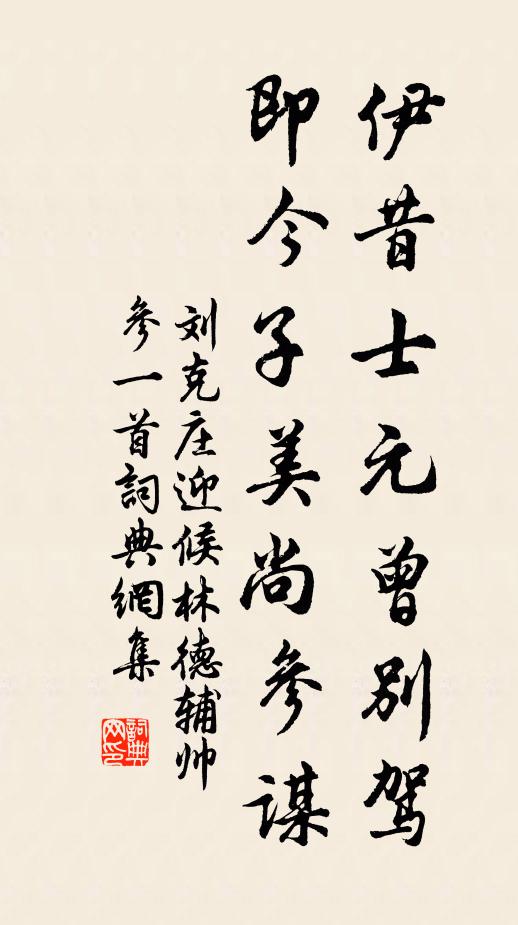 伊昔士元曾别驾
即今子美尚參谋
刘克庄迎候林德辅帅
參一首詞典網集
詞典
网印